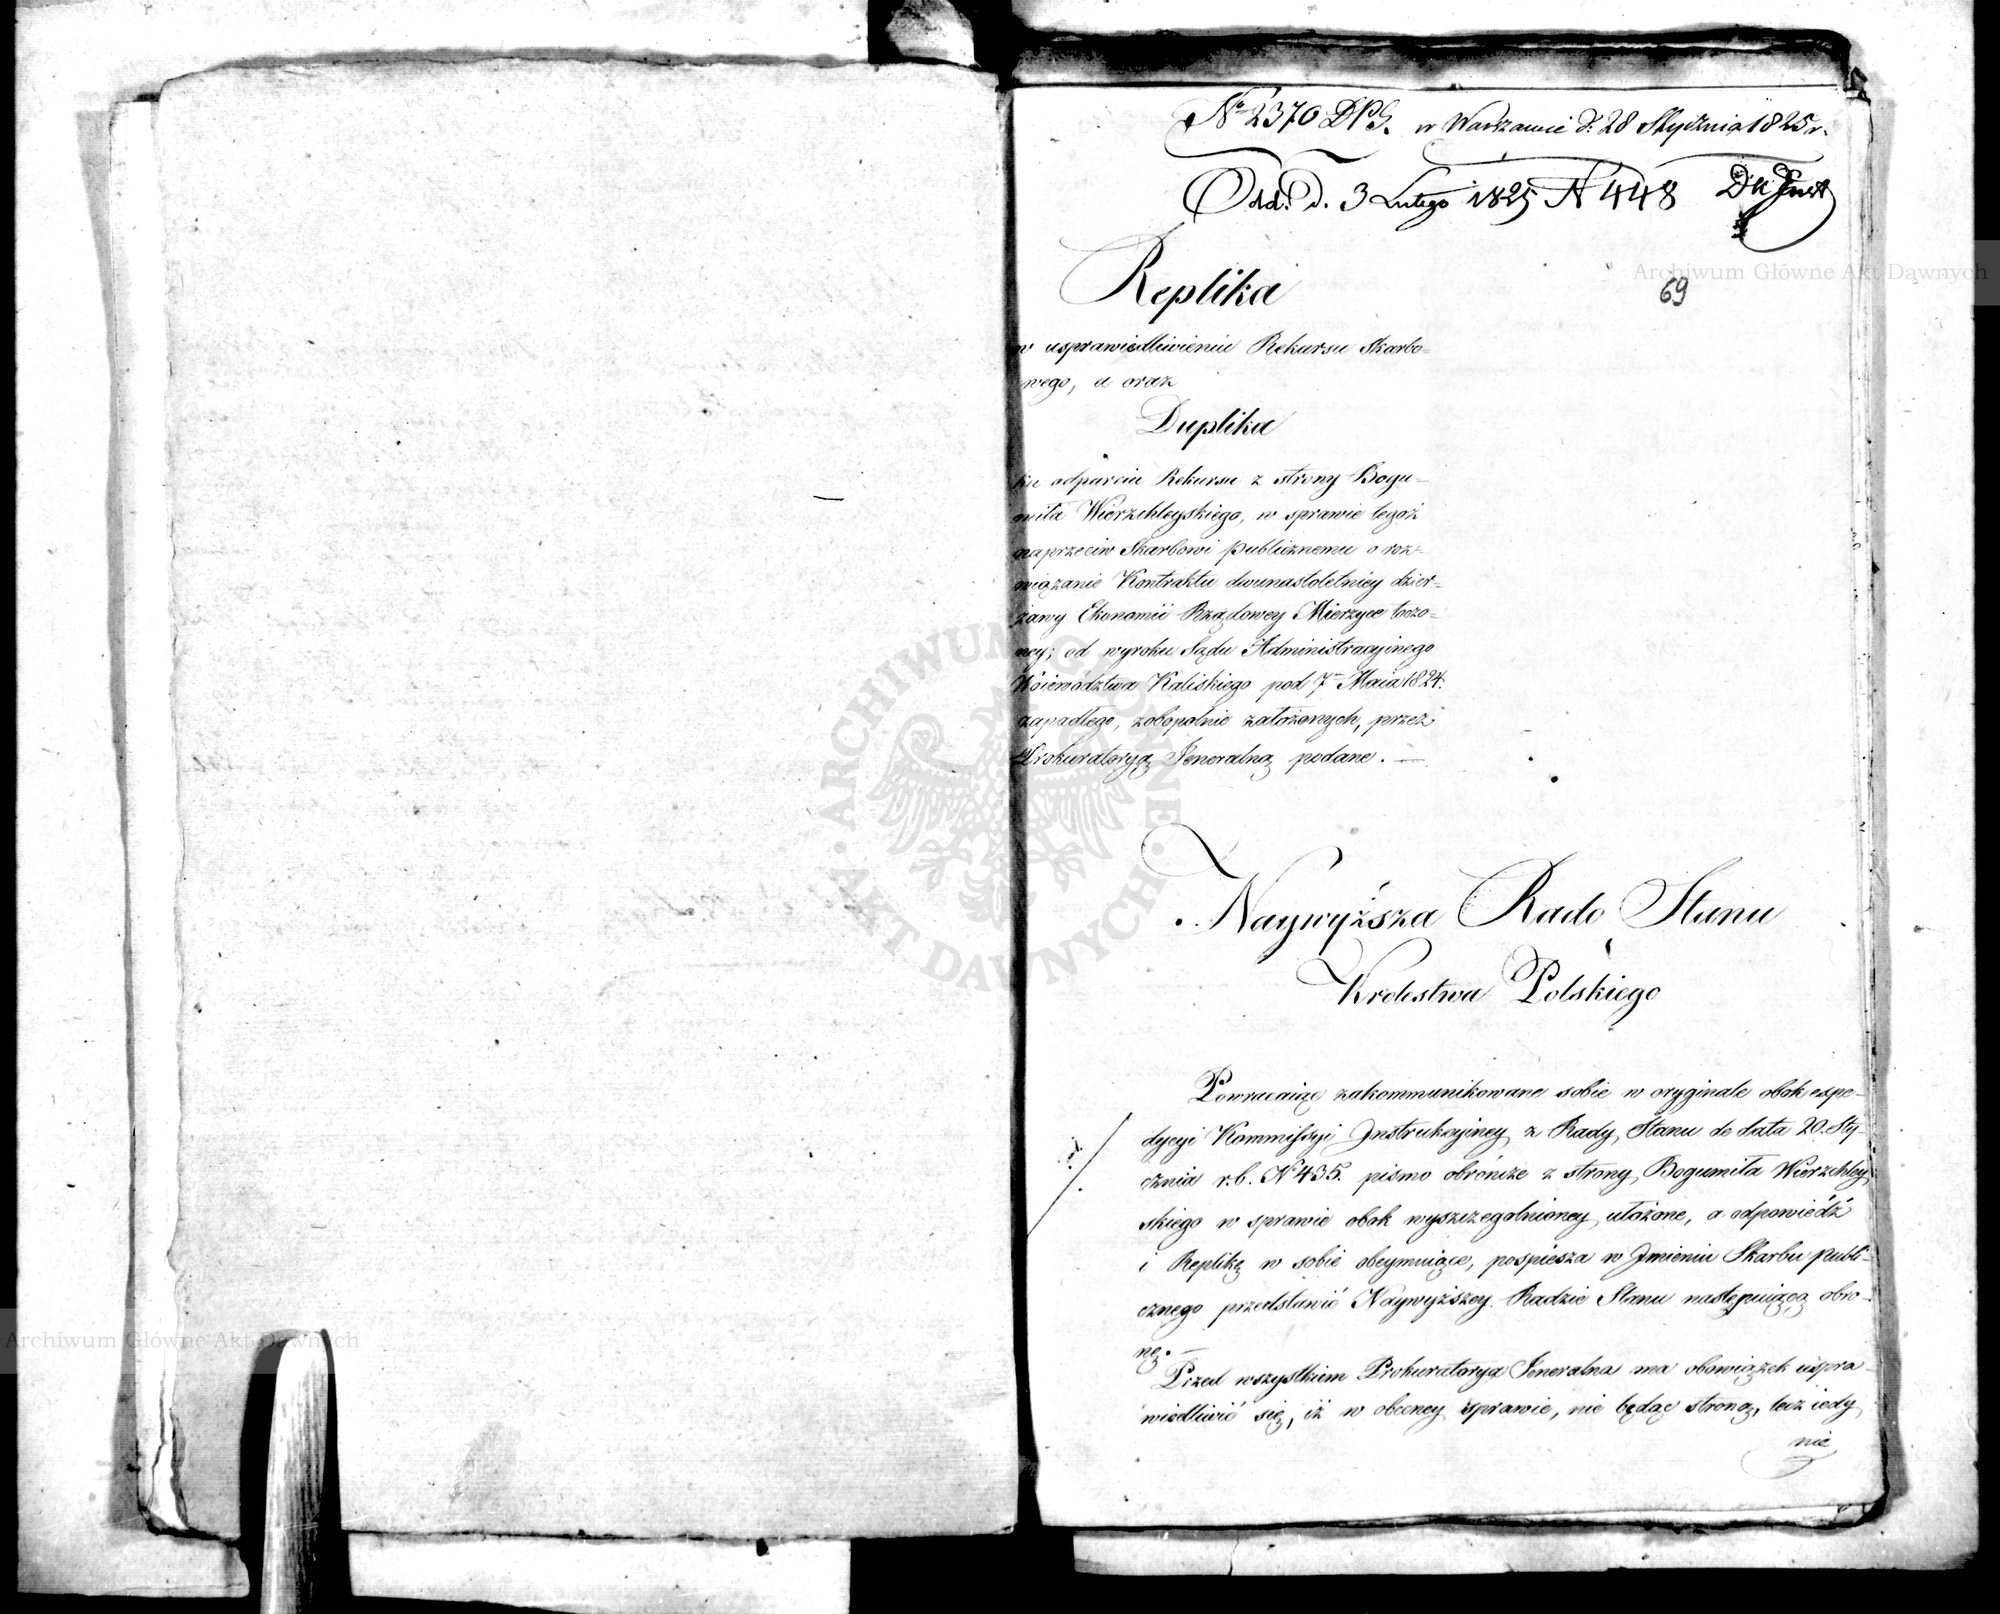 No 2370 DPG. w Warszawie d: 28 Stycznia 1825 r.
Odd: d. 3 Lutego 1825 N 448
69
Replika
w usprawiedliwieniu Rekursu Skarbo=
wego, a oraz
Duplika
ku odparciu Rekursu z strony Bogu=
miła Wierzchleyskiego, w sprawie tegoż
naprzeciw Skarbowi publicznemu o roz=
wiązanie Kontraktu dwunastoletniey dzier=
żawy Ekonomii Rządowey Mierzyce toczo=
ney; od wyroku Sądu Administracyjnego
Woiewództwa Kaliskiego pod 7. Maia 1824.
zapadłego, zobopolnie założonych, przez
Prokuratoryą Jeneralną podane. —
Naywyższa Rado Stanu
Krolestwa Polskiego
Powracaiąc zakommunikowane sobie w oryginale obok expe=
dycyi Kommissyi Instrukcyiney z Rady Stanu de data 20. Sty=
cznia r.b. N 435. pismo obrończe z strony Bogumiła Wierzchley
skiego w sprawie obok wyszczegolnioney ułożone, a odpowiedź
i Replikę w sobie obeymuiące, pospiesza w Jmieniu Skarbu publi=
cznego przedstawić Naywyższey Radzie Stanu następuiącą obro=
nę. —
Przed wszystkiem Prokuratorya Jeneralna ma obowiązek uspra
wiedliwić się, iż w obecney sprawie, nie będąc stroną, lecz iedy
nie
Archiwum Główne Akt Dawnych
Archiwum Główne Akt Dawnych
ARCHIWUM GŁÓWNE AKT DAWNYCH